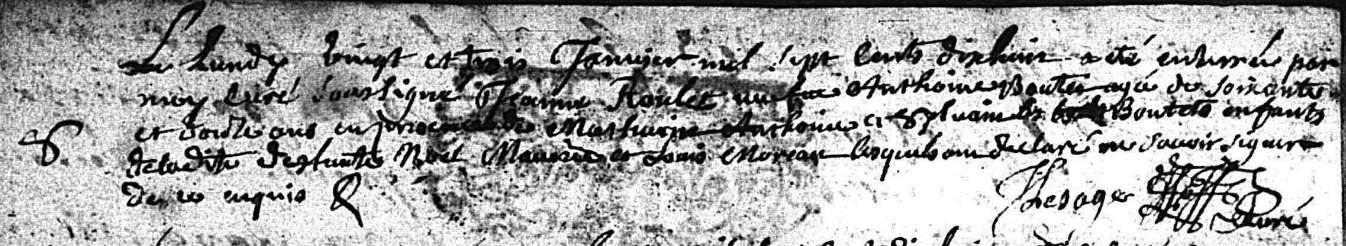 Le Lundy vingt et trois Janvier mil sept cents dixhuit a eté enterrée par
moy Curé soussigné Jeanne Roulet veufve Anthoine Boutet agée de soixante
et douze ans en presence de Mathurin Anthoine et Sylvain Boutets enfants
de ladite deffunte Noël Maurice et Louis Moreau lesquels ont declaré ne sçavoir signer
de ce enquis
S
Lesage Curé